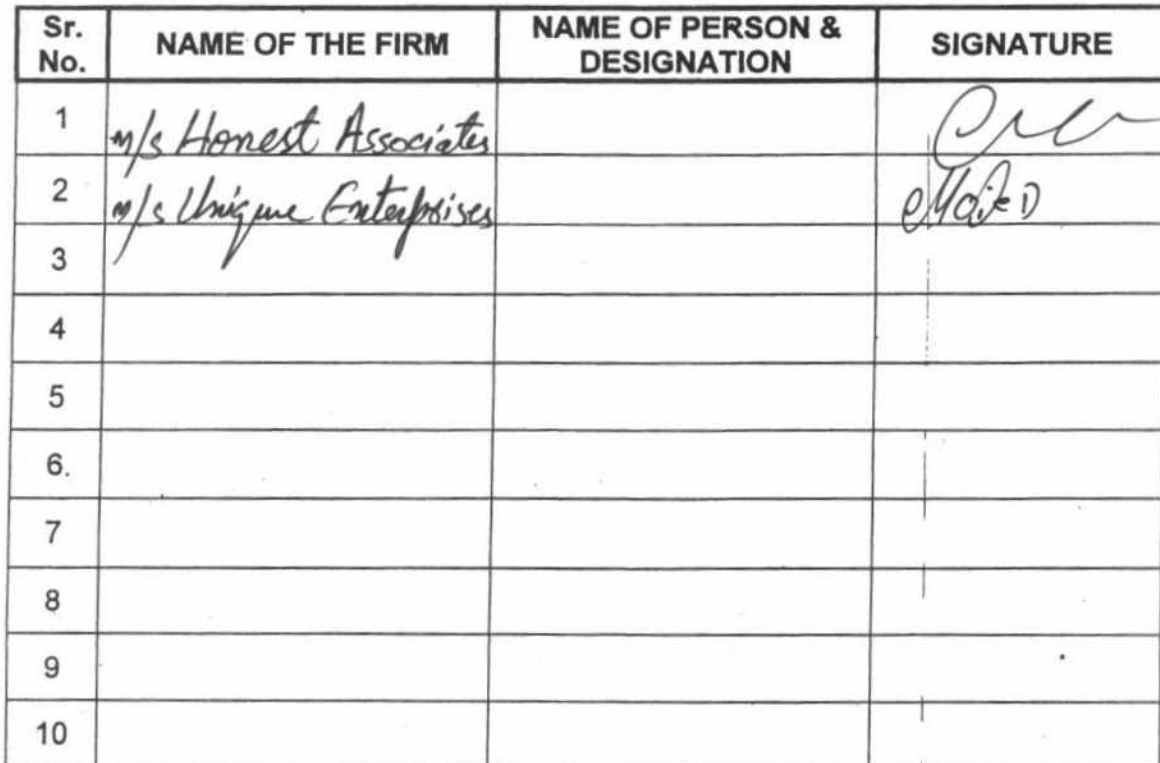 Sr. No. NAME OF THE FIRM NAME OF PERSON & DESIGNATION SIGNATURE
1 m/s Honest Associates
2 m/s Unique Enterprises
3
4
5
6.
7
8
9
10